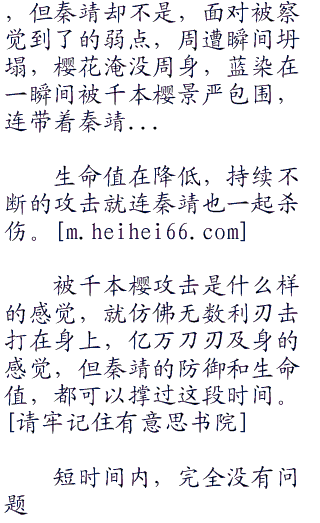 ，但秦靖却不是，面对被察
觉到了的弱点，周遭瞬间坍
塌，樱花淹没周身，蓝染在
一瞬间被千本樱景严包围，
连带着秦靖...
生命值在降低，持续不
断的攻击就连秦靖也一起杀
伤。[m.heihei66.com]
被千本樱攻击是什么样
的感觉，就仿佛无数利刃击
打在身上，亿万刀刃及身的
感觉，但秦靖的防御和生命
值，都可以撑过这段时间。
[请牢记住有意思书院]
短时间内，完全没有问
题